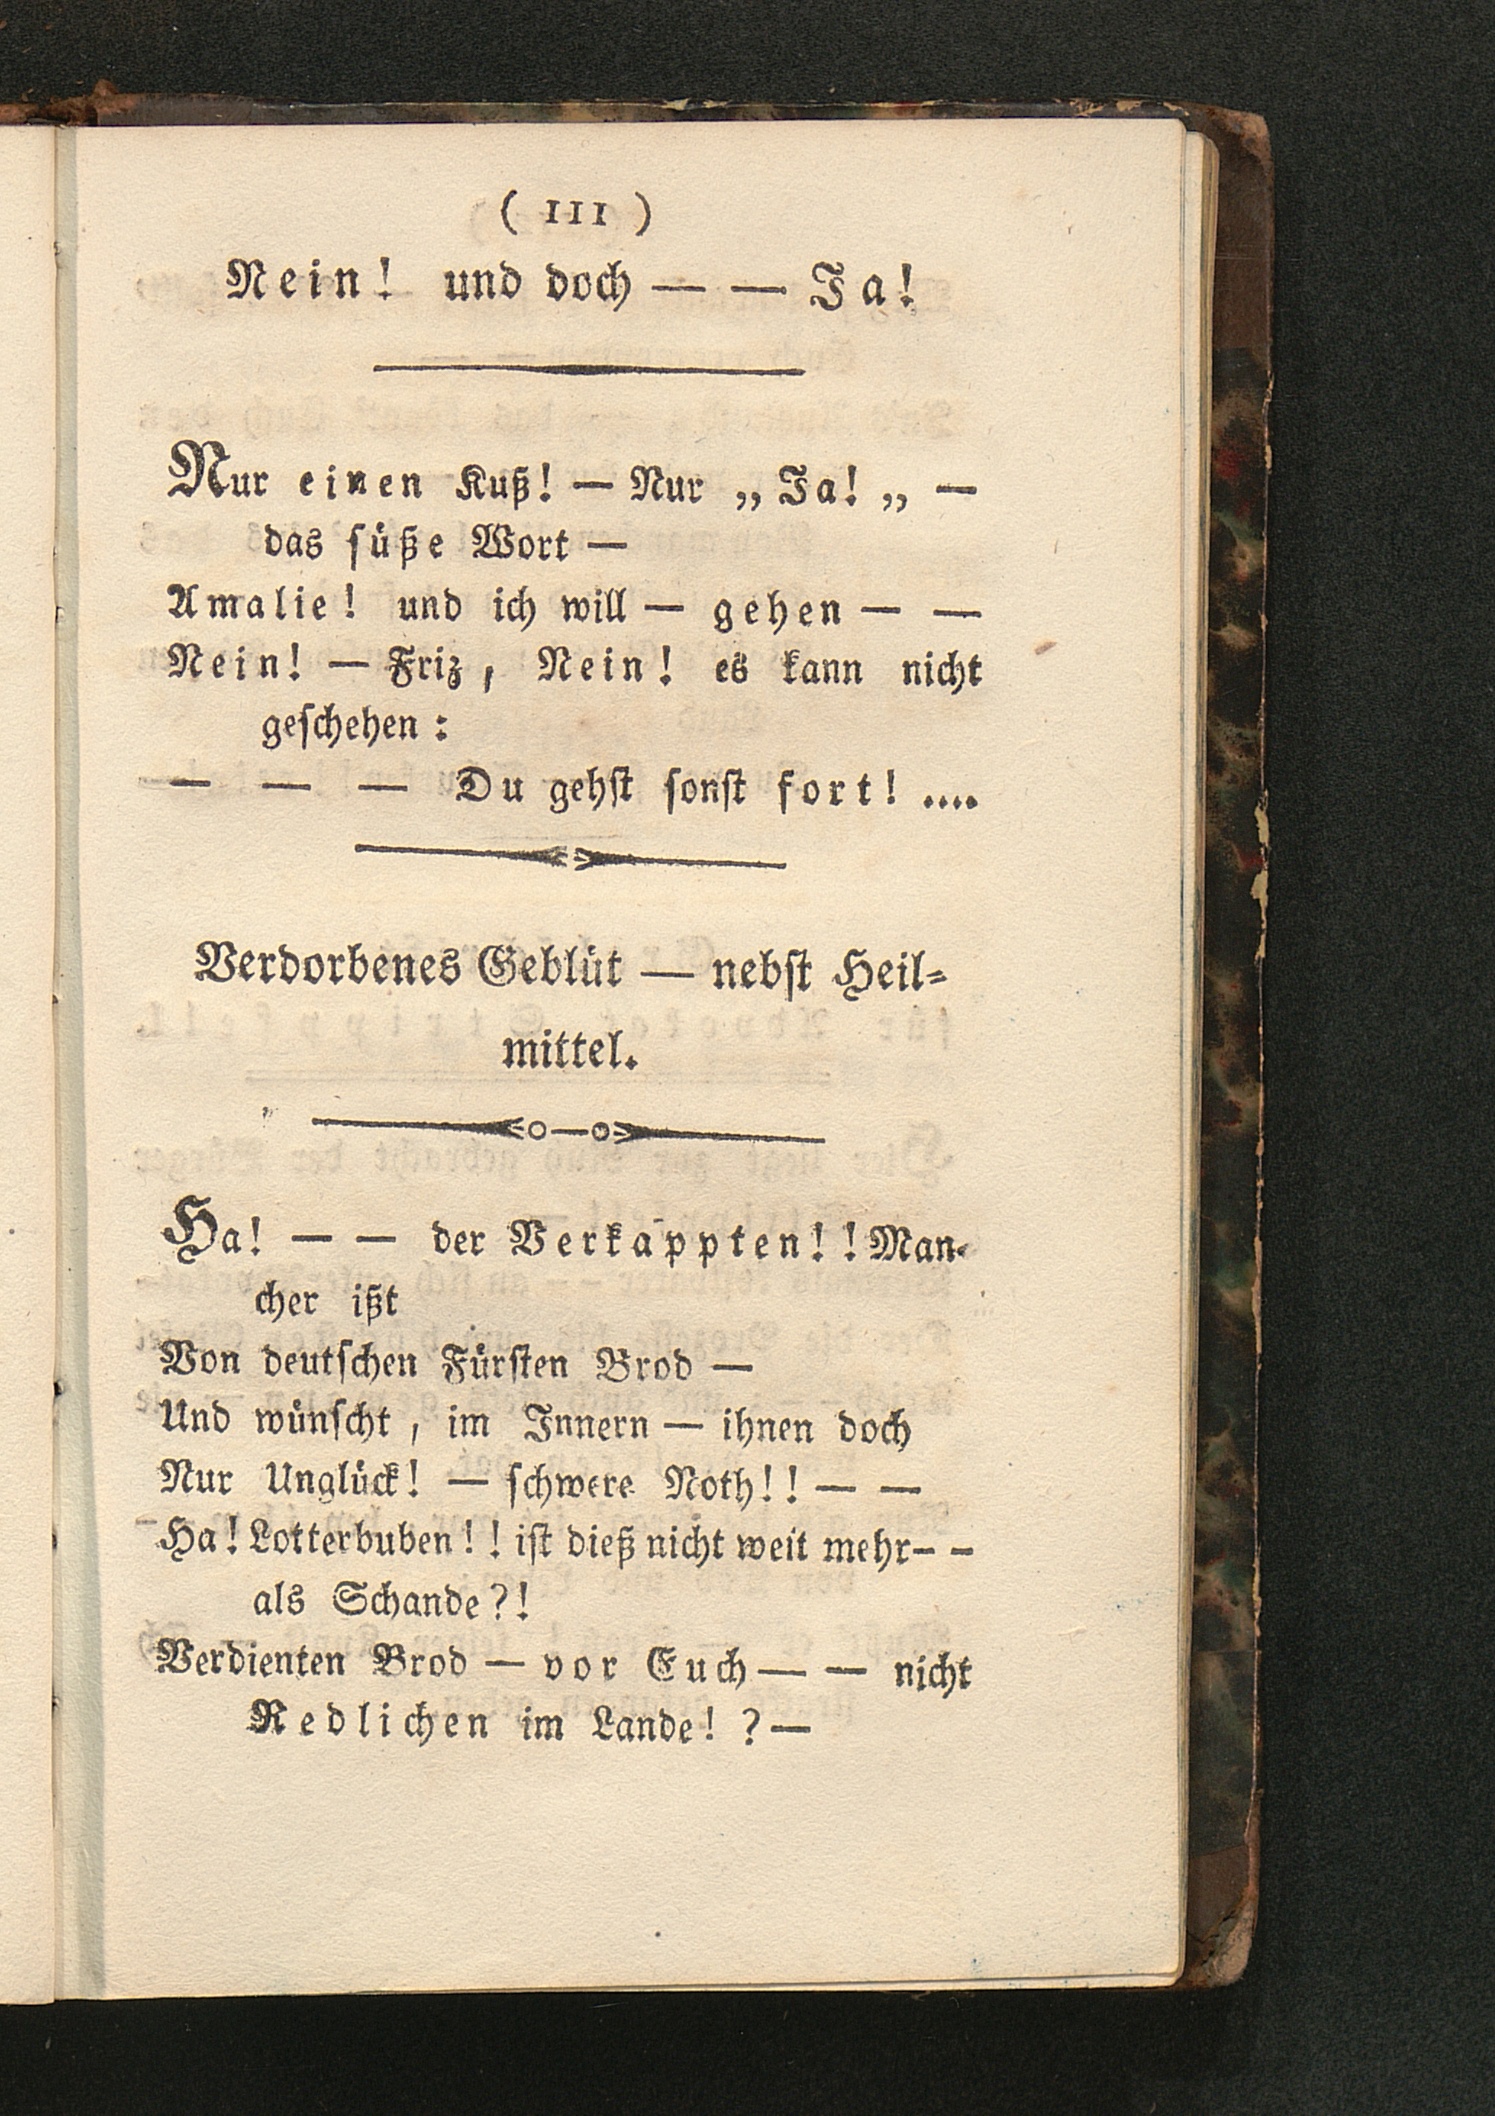 ( 111 )
Nein! und doch — — Ja!
Nur einen Kuß! — Nur „ Ja! „ —
das süße Wort —
Amalie! und ich will — gehen — —
Nein! — Friz, Nein! es kann nicht
geschehen:
— — — Du gehst sonst fort! ....
Verdorbenes Geblüt — nebst Heil-
mittel.
Ha! — — der Verkappten!! Man-
cher ißt
Von deutschen Fürsten Brod —
Und wünscht, im Innern — ihnen doch
Nur Unglück! — schwere Noth!! — —
Ha! Lotterbuben!! ist dieß nicht weit mehr— —
als Schande?!
Verdienten Brod — vor Euch — — nicht
Redlichen im Lande! ? —